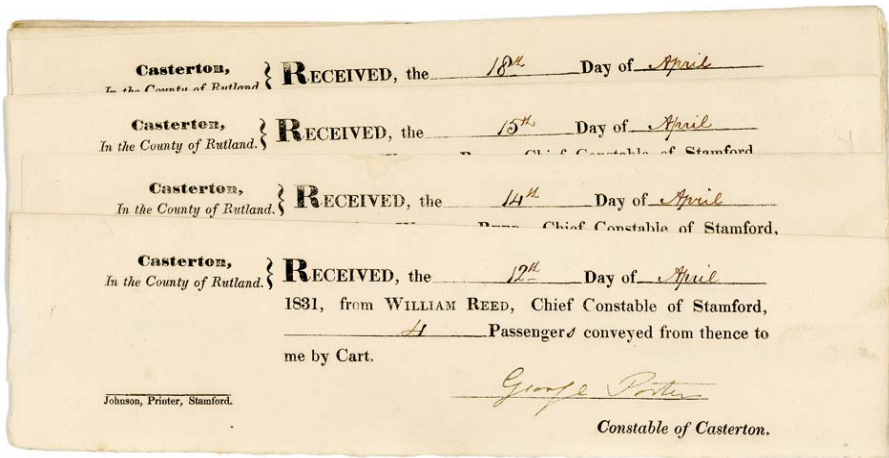 Casterton,
In the County of Rutland
RECEIVED, the 18th Day of April
Casterton,
In the County of Rutland.
RECEIVED, the 15th Day of April
Chief Constable of Stamford
Casterton,
In the County of Rutland.
RECEIVED, the 14th Day of April
REED, Chief Constable of Stamford,
Casterton,
In the County of Rutland.
RECEIVED, the 12th Day of April
1831, from WILLIAM REED, Chief Constable of Stamford,
4 Passengers conveyed from thence to
me by Cart.
George Porter
Johnson, Printer, Stamford.
Constable of Casterton.